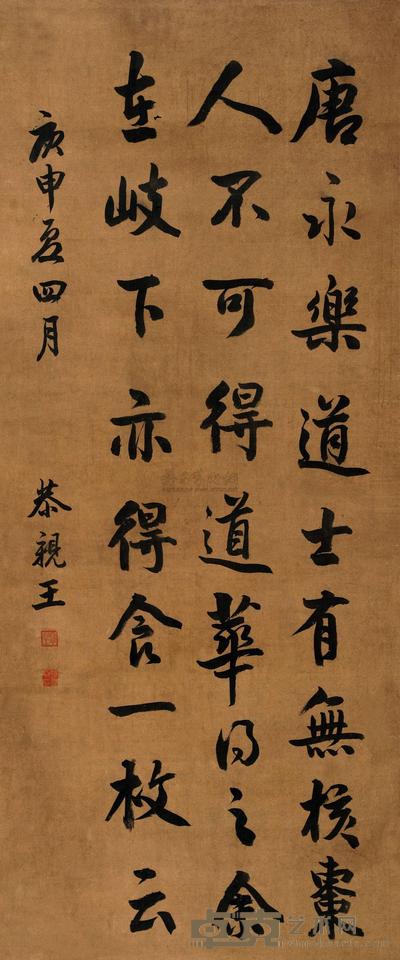 唐永樂道士有無核棗
人不可得道華得之余
在岐下亦得食一枚云
庚申夏四月 恭親王
卓克艺术网